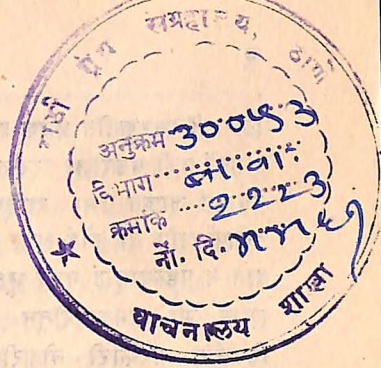 मराठी ग्रंथ संग्रहालय, ठाणे
अनुक्रम ३००५३
विभाग
क्रमांक २२२३
नों. दि.
वाचनालय शाखा